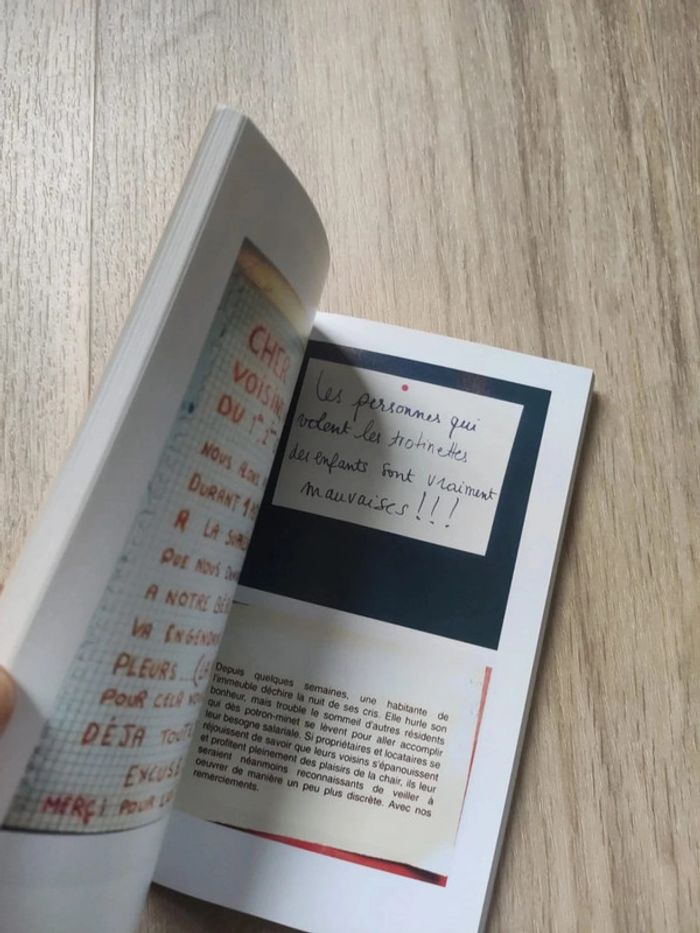 CHER
VOISIN
DU 1er
NOUS
DURANT
A LA
QUE NOUS
A NOTRE
VA
PLEURS...
POUR CELA
DÉJA TOUTE
EXCUSE
MERCI POUR
Les personnes qui
volent les trotinettes
des enfants sont vraiment
mauvaises!!!
Depuis quelques semaines, une habitante de
l'immeuble déchire la nuit de ses cris. Elle hurle son
bonheur, mais trouble le sommeil d'autres résidents
qui dès potron-minet se lèvent pour aller accomplir
leur besogne salariale. Si propriétaires et locataires se
réjouissent de savoir que leurs voisins s'épanouissent
et profitent pleinement des plaisirs de la chair, ils leur
seraient néanmoins reconnaissants de veiller à
oeuvrer de manière un peu plus discrète. Avec nos
remerciements.